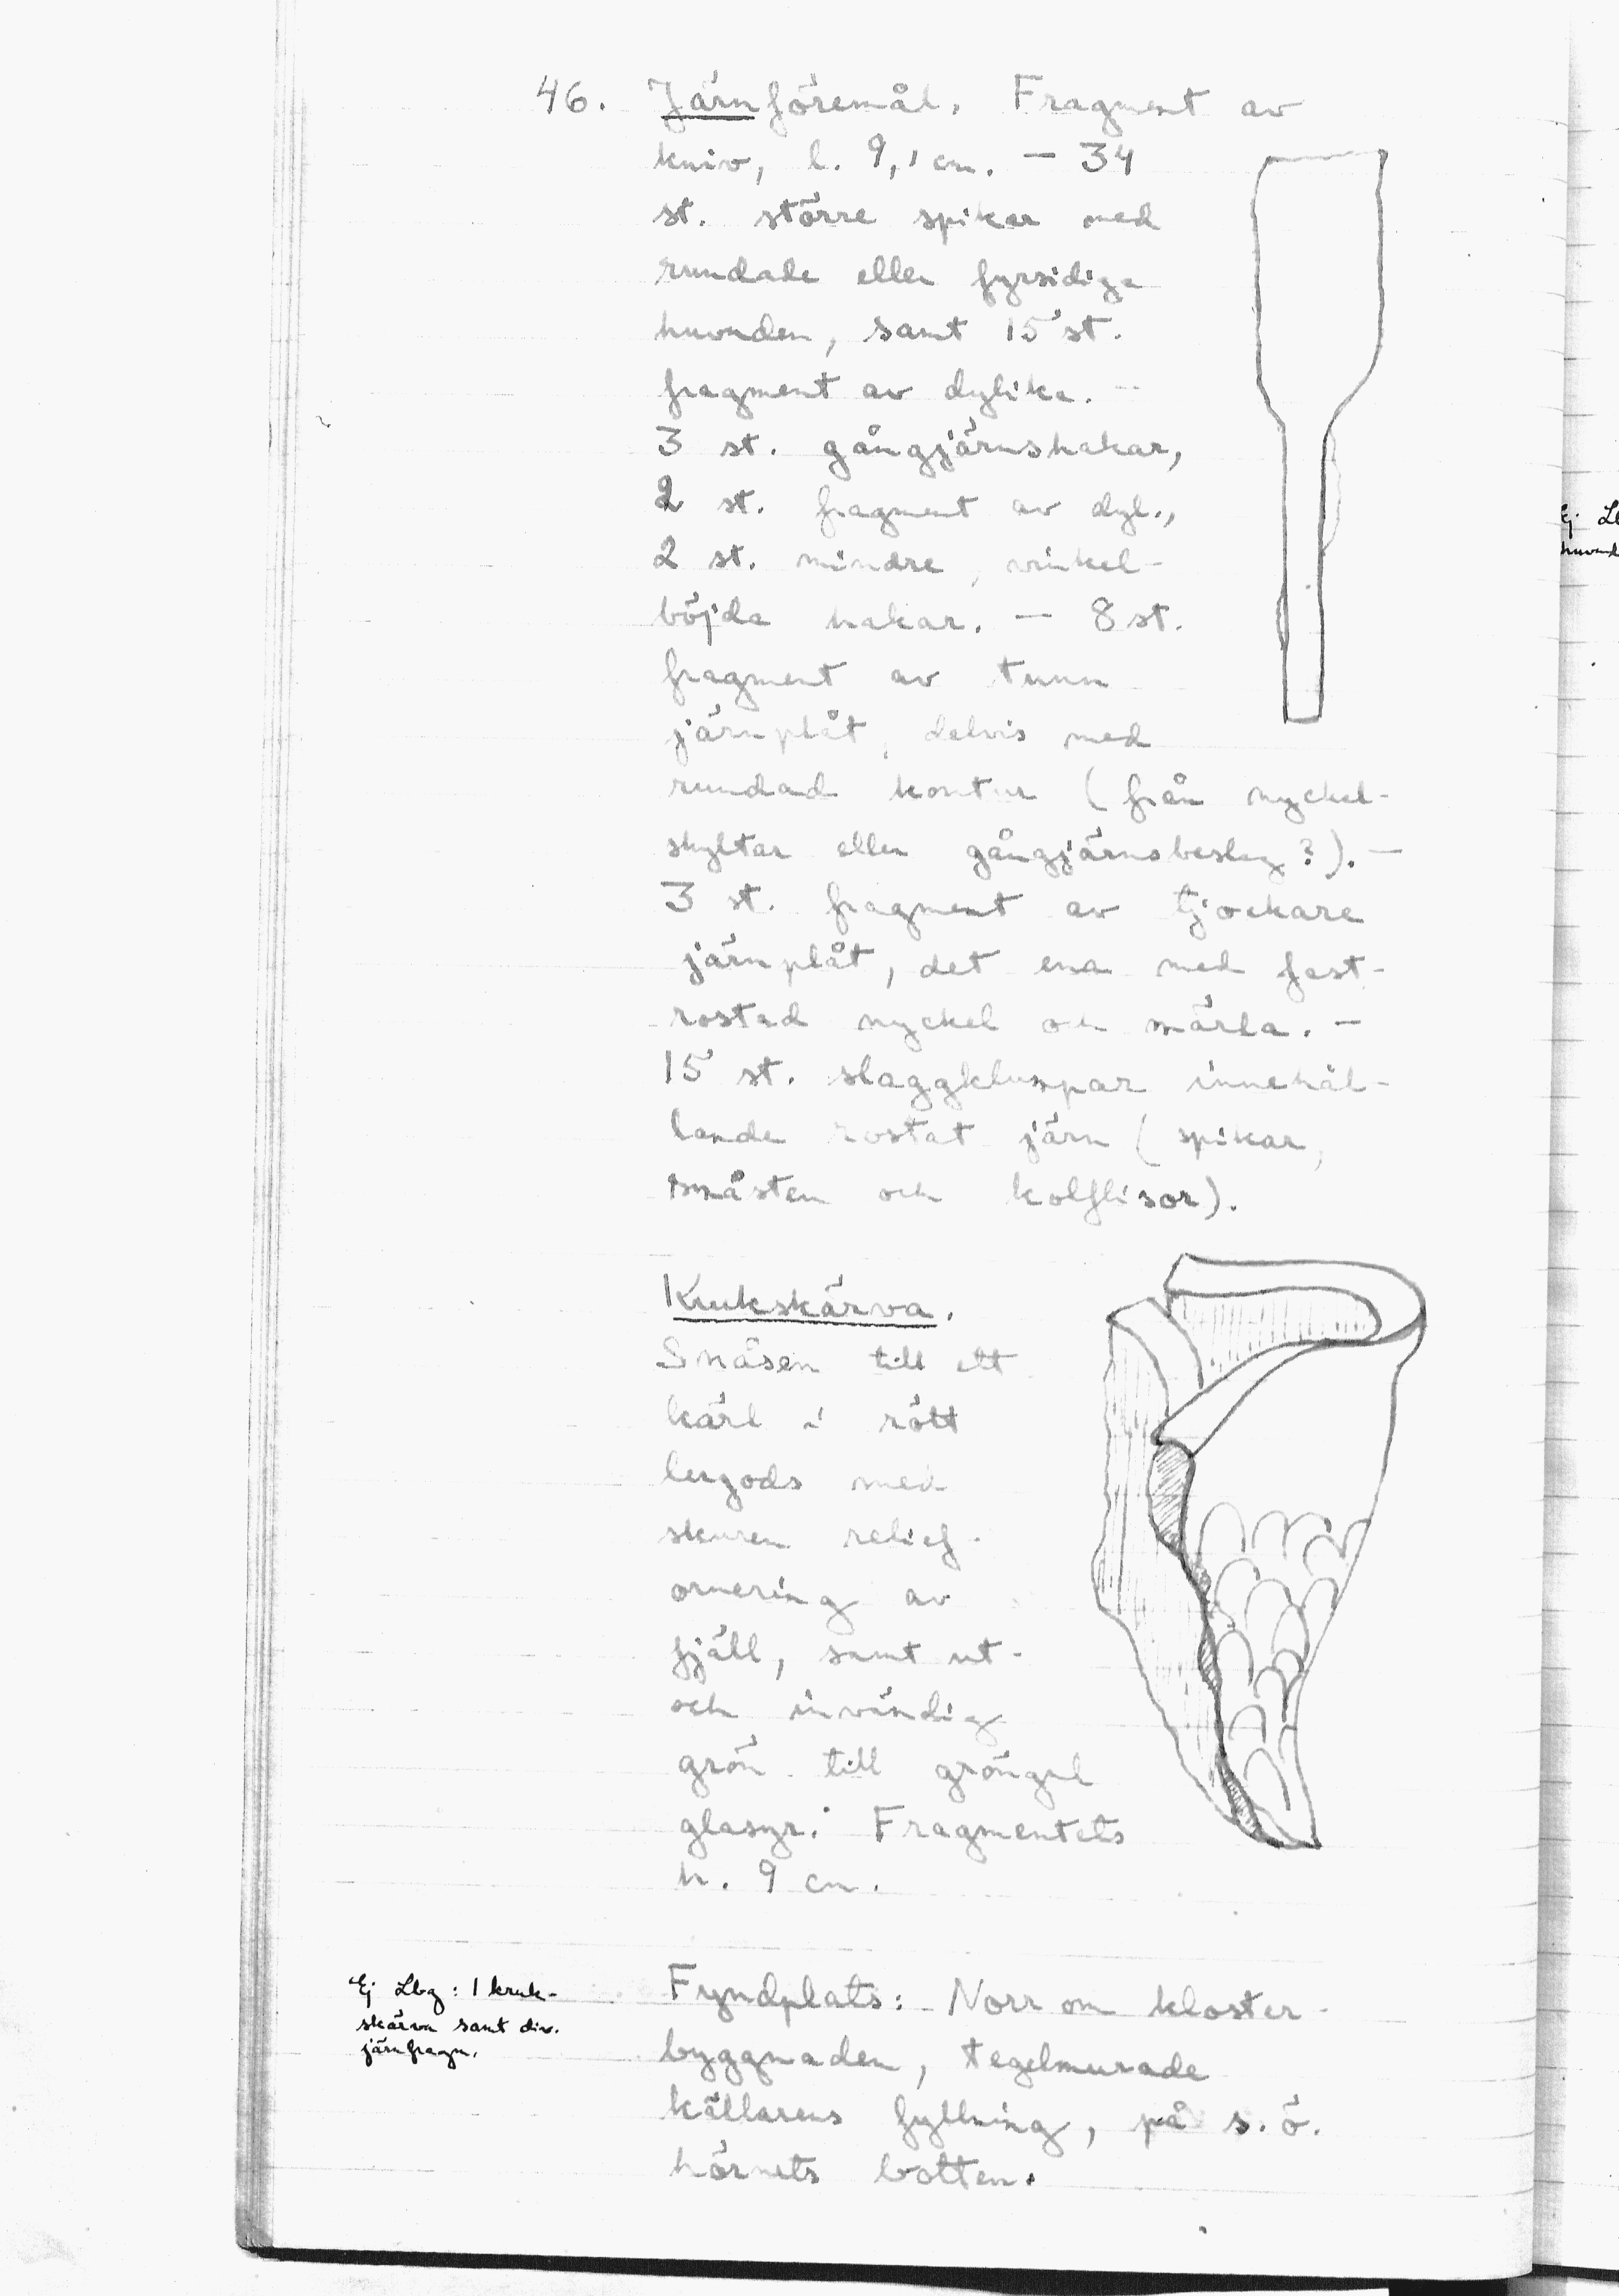 46. Järnföremål. Fragment av
kniv, l. 9,1 cm. — 34
st. större spikar med
rundade eller fyrsidiga
huvuden, samt 15 st.
fragment av dylika. —
3 st. gångjärnshakar,
2 st. fragment av dyl.,
2 st. mindre, vinkel-
böjda hakar. — 8 st.
fragment av tunn
järnplåt, delvis med
rundad kontur (från nyckel-
skyltar eller gångjärnsbeslag?). —
3 st. fragment av tjockare
järnplåt, det ena med fast-
rostad nyckel och märla. —
15 st. slaggklumpar innehål-
lande rostat järn (spikar,
småsten och kolflisor).
Krukskärva.
Snåsen till ett
kärl i rött
lergods med
skuren relief-
ornering av
fjäll, samt ut-
och invändig
grön till gröngul
glasyr. Fragmentets
h. 9 cm.
Ej Lbg: 1 kruk-
skärva samt div.
järnfragm.
Fyndplats: Norr om kloster-
byggnaden, tegelmurade
källarens fyllning, på s.ö.
hörnets botten.
Ej